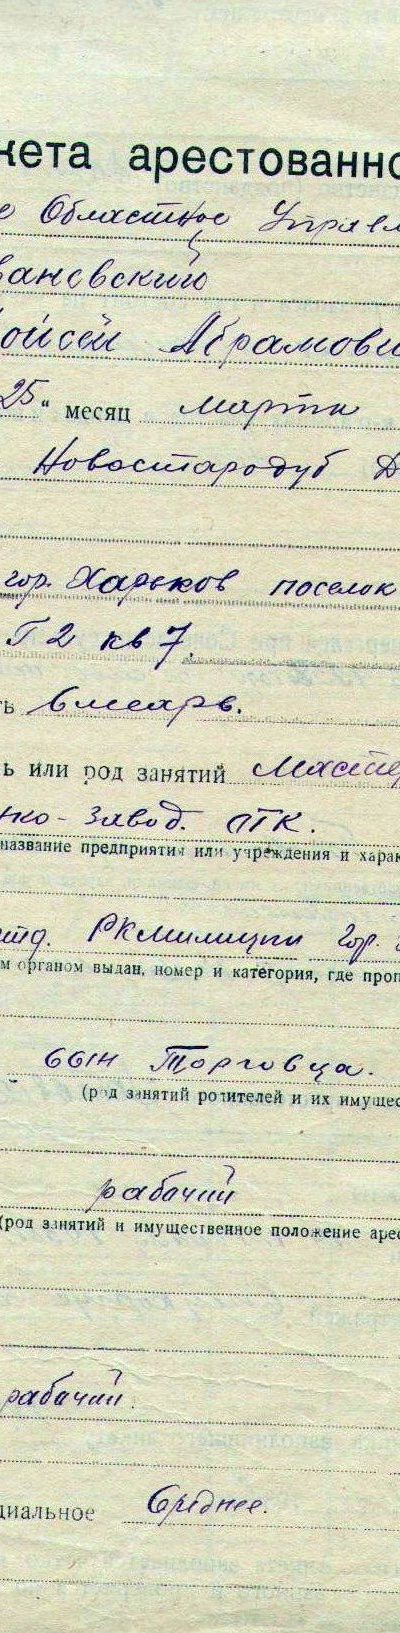 кета арестованно
е Областное Управл
вановский
ойсей Абрамови
25 " месяц марта
Новостародуб Д
гор. Харьков поселок
Г 2 кв 7.
ть слесарь.
ь или род занятий Мастер
нко-завод. ОТК.
название предприятия или учреждения и харак
РКМилиции Гор.
м органом выдан, номер и категория, где проп
сын Торговца.
(род занятий родителей и их имущес
рабочий
(род занятий и имущественное положение арес
рабочий.
циальное Среднее.